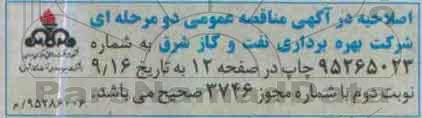 اصلاحیه در آگهی مناقصه عمومی دو مرحله ای
شرکت بهره برداری نفت و گاز شرق به شماره
۹۵۲۶۵۰۲۳ چاپ در صفحه ۱۲ به تاریخ ۹/۱۶
نوبت دوم با شماره مجوز ۳۷۴۶ صحیح می باشد.